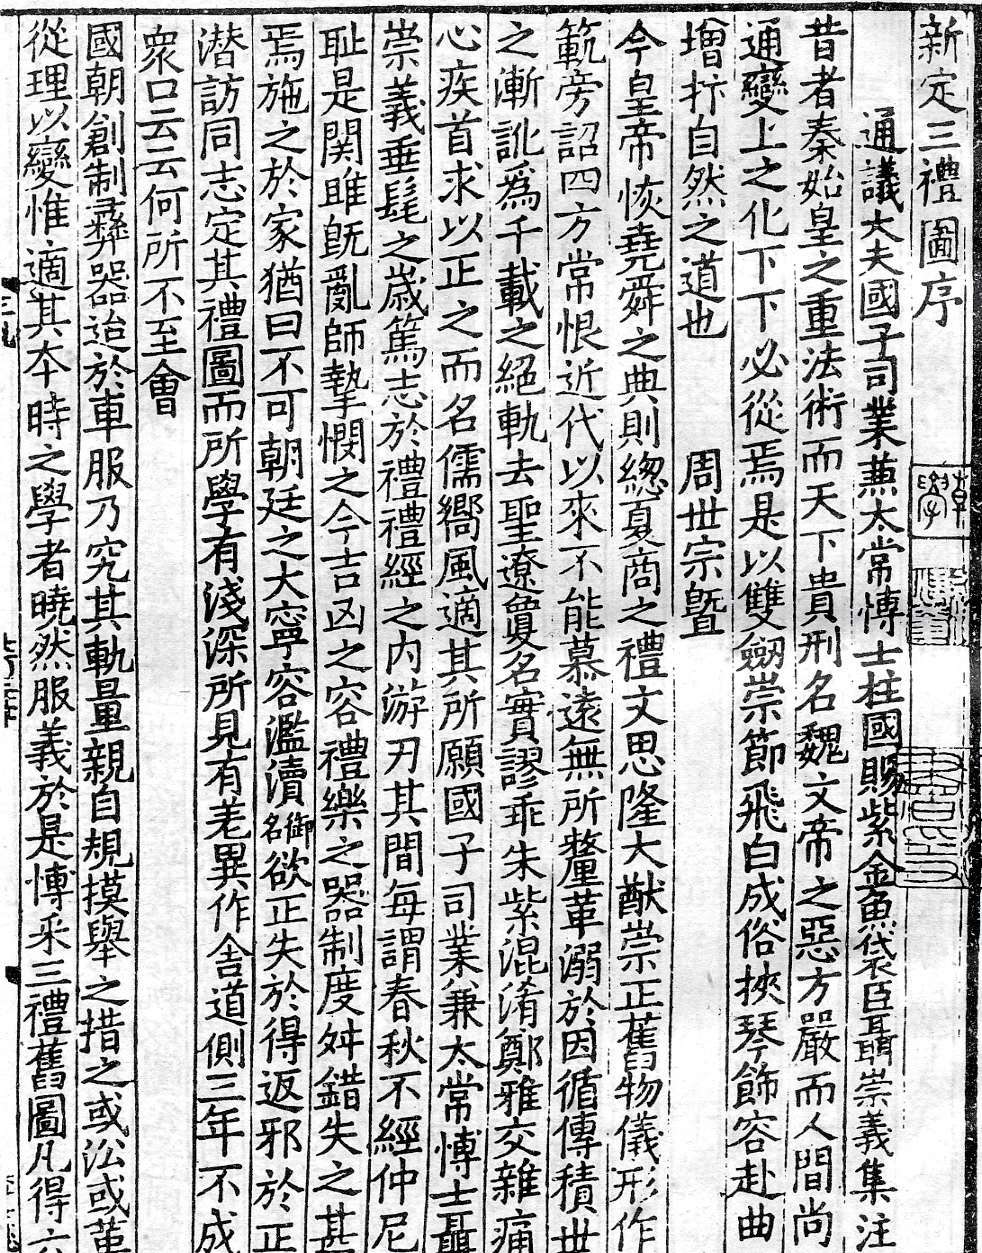 新定三禮圖序
通議大夫國子司業兼太常愽士柱國賜紫金魚袋臣聶崇義集注
昔者秦始皇之重法術而天下貴刑名魏文帝之惡方嚴而人間尚
通變上之化下下必從焉是以雙劒崇節飛白成俗挾琴飾容赴曲
增抃自然之道也　周世宗曁
今皇帝恢堯舜之典則緫夏商之禮文思隆大猷崇正舊物儀形作
範旁詔四方常恨近代以來不能慕遠無所釐革溺於因循傳積世
之漸訛爲千載之絕軌去聖遼敻名實謬乖朱紫混淆鄭雅交雜痛
心疾首求以正之而名儒嚮風適其所願國子司業兼太常愽士聶
崇義垂髦之歲篤志於禮禮經之內游刃其間每謂春秋不經仲尼
耻是関雎既亂師摯憫之今吉凶之容禮樂之器制度舛錯失之甚
焉施之於家猶曰不可朝廷之大寧容濫瀆御名欲正失於得返邪於正
潜訪同志定其禮圖而所學有淺深所見有差異作舎道側三年不成
衆口云云何所不至會
國朝創制彝器迨於車服乃究其軌量親自規摸舉之措之或沿或革
從理以變惟適其本時之學者曉然服義於是愽采三禮舊圖凡得六